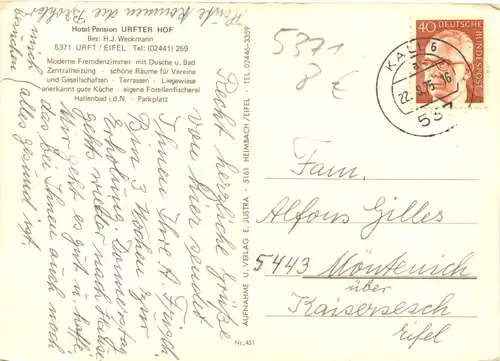 Hotel Pension URFTER HOF
Bes: H.J. Weckmann
5371 URFT / EIFEL Tel: (02441) 259
Moderne Fremdenzimmer mit Dusche u. Bad
Zentralheizung - schöne Räume für Vereine
und Gesellschaften - Terrassen - Liegewiese
anerkannt gute Küche - eigene Forellenfischerei
Hallenbad i.d.N. - Parkplatz
Recht herzliche Grüße
von hier sendet
Ihnen Ihre A. Frosch
Bin 3 Wochen zur
Erholung. Donnerstag
gehts wieder nach Hause
Mir geht es gut u. hoffe
das bei Ihnen auch noch
alles gesund ist.
Heute kommen die
mich
besuchen
AUFNAHME U. VERLAG E. JUSTRA · 5161 HEIMBACH/EIFEL · TEL. 02446-3359
Nr. 451
5371
8 €
40 DEUTSCHE
BUNDESPOST
KALL 6
a
22.9.75-16
537
Fam.
Alfons Gilles
5443 Möntenich
über
Kaisersesch
Eifel